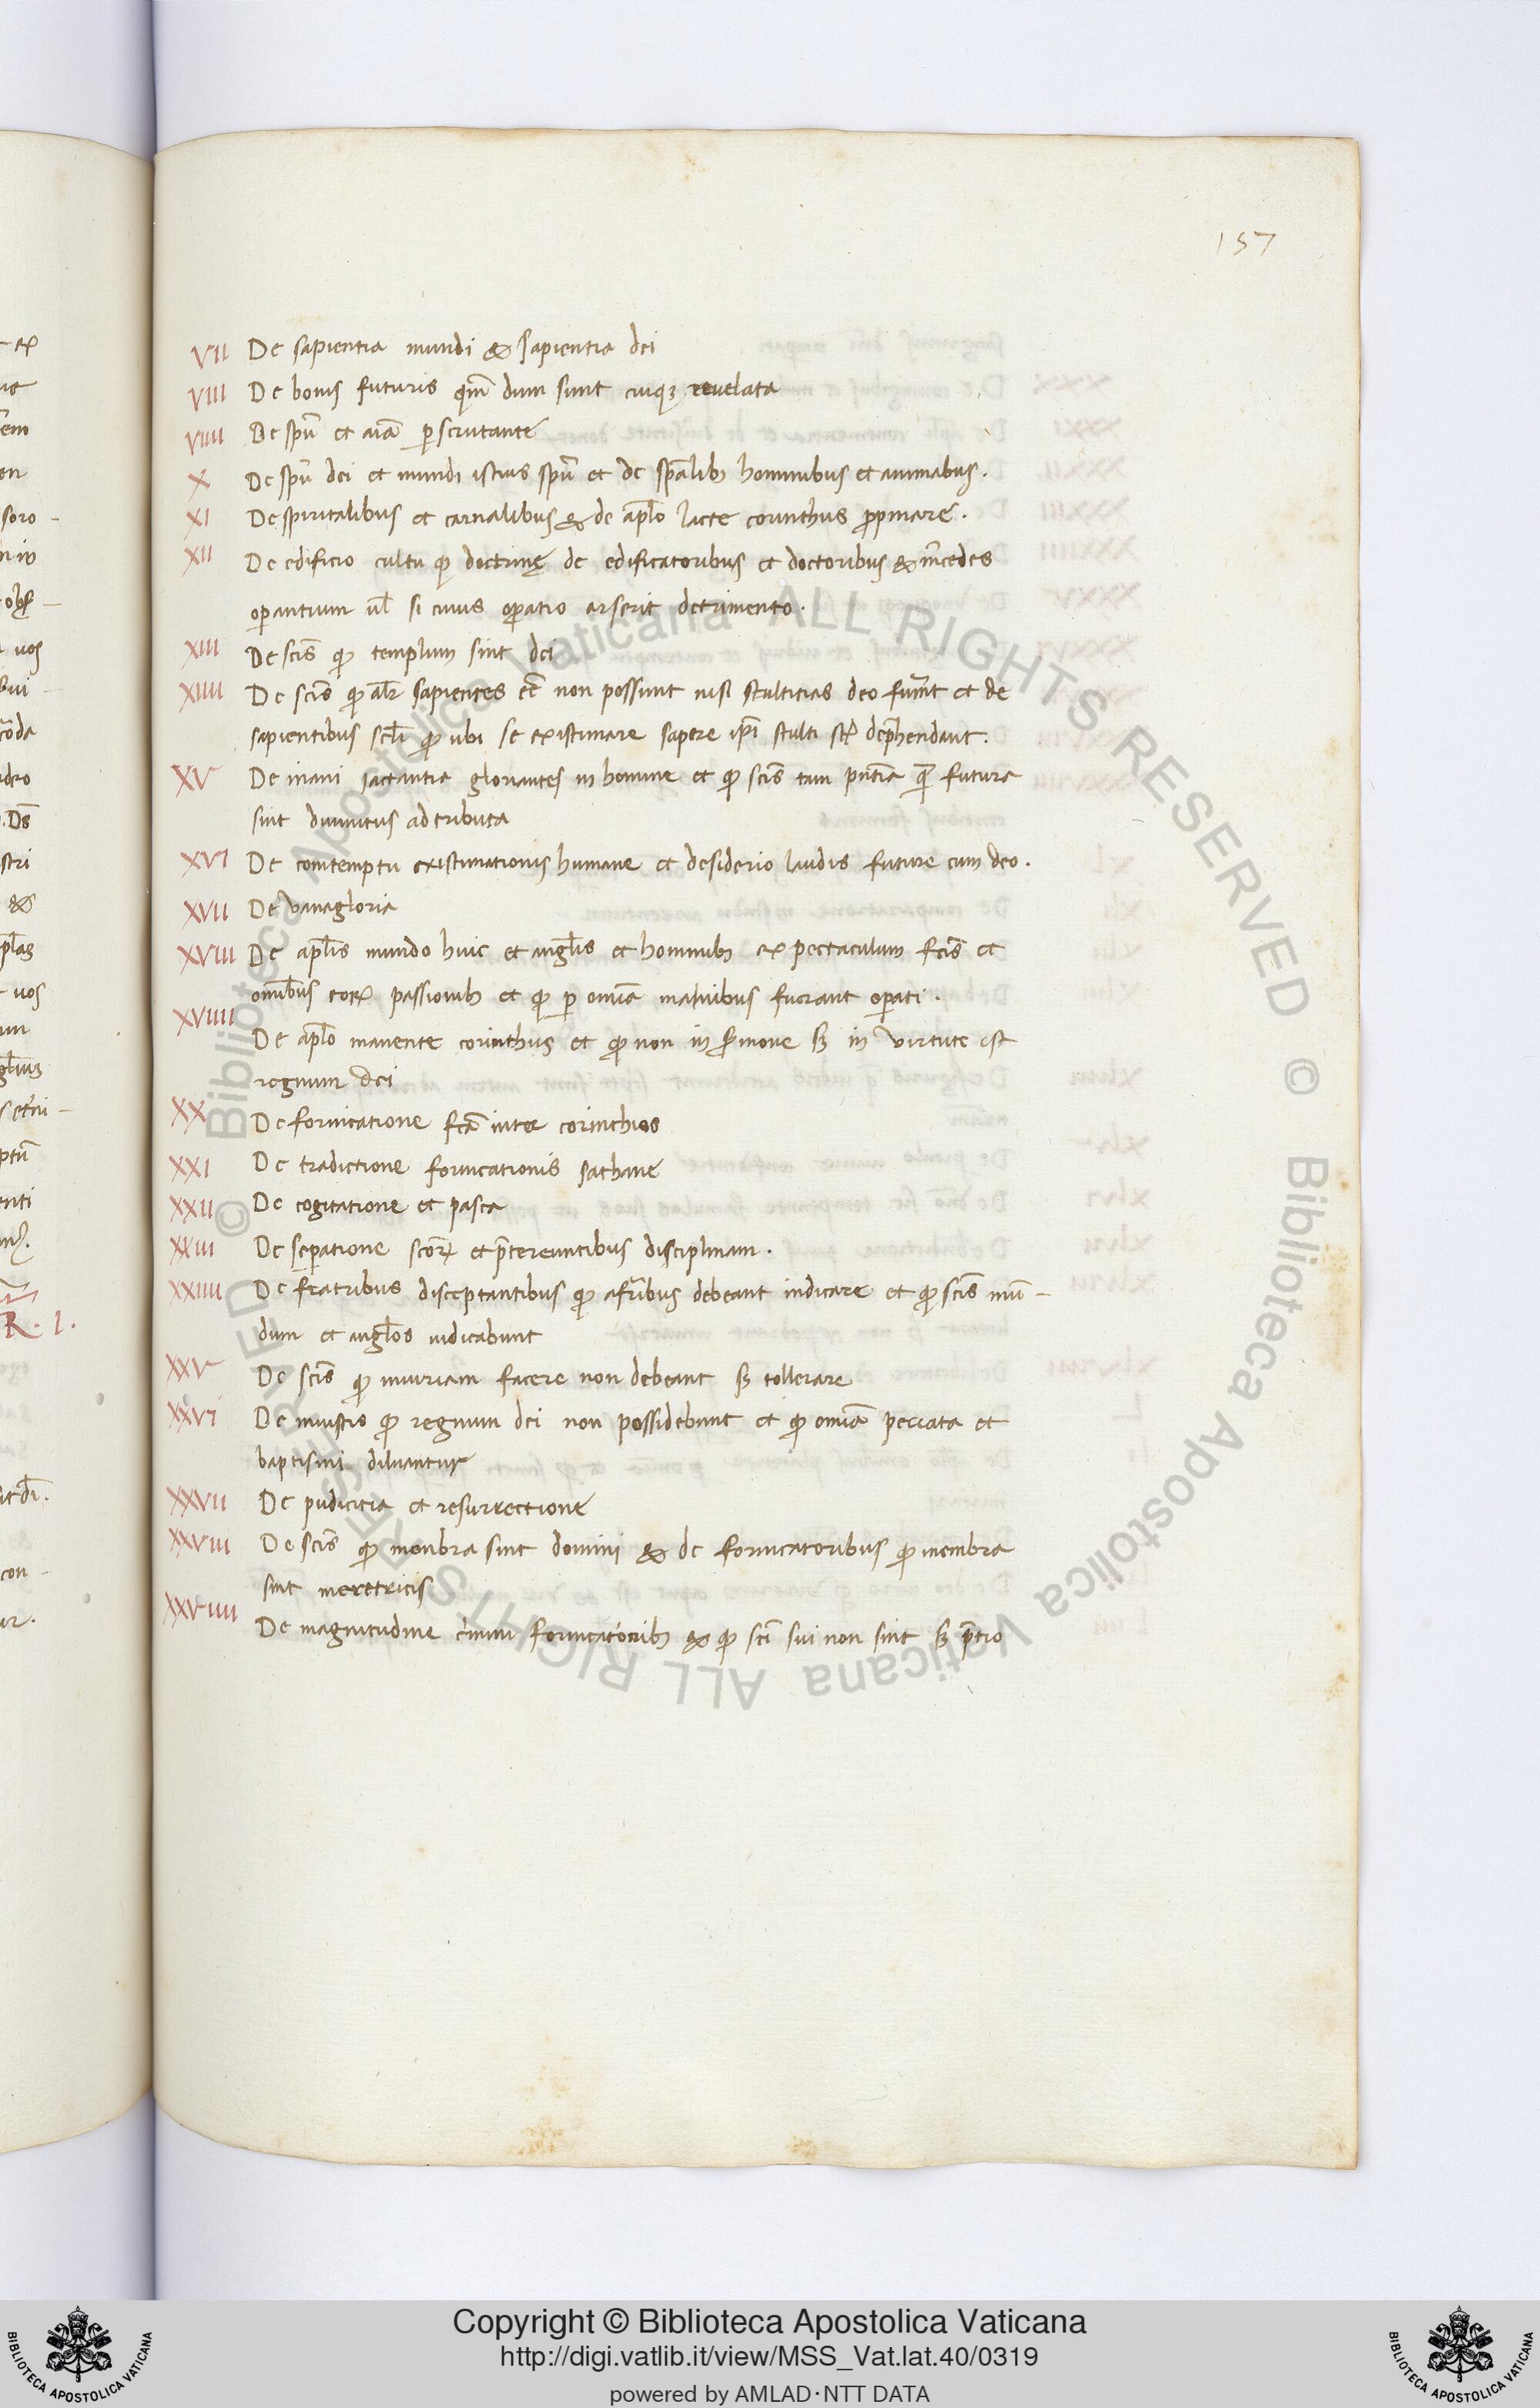 157
VII De sapientia mundi & sapientia dei
VIII De bonis futuris qm̄ dum sunt cuiq; reuelata
VIIII De spū et aīa ꝑscrutante
X De spū dei et mundi istius spū et de spālib; hominibus et animabus.
XI De spiritalibus et carnalibus & de aplō lacte corinthus ꝓpinare.
XII De edificio cultu ꝙ doctrinę de edificatoribus et doctoribus & m̄cedes
oꝑantium ul̄ si cuius oꝑatio arserit detrimento.
XIII De scīs ꝙ templum sint dei
XIIII De scīs ꝙ alr̄ sapientes eē non possunt nisi stulticias deo fuer̄nt et de
sapientibus secl̄i ꝙ ubi se existimare sapere ip̄i stulti st̄ dep̄hendant.
XV De inani iactantia gloriantes in homine et ꝙ scīs tam pn̄tia q̄ futura
sint diuinitus adtributa
XVI De comtemptu existimationis humane et desiderio laudis future cum deo.
XVII De vanagloria
XVIII De apl̄is mundo huic et angl̄is et hominib; expectaculum fc̄is et
omībus eoꝝ passionib; et ꝙ ꝑ omīa manibus fuerant oꝑati.
XVIIII De aplō manente corinthus et ꝙ non in s̄mone s; in virtute est
regnum dei
XX De fornicatione fc̄a inter corinthios
XXI De tradictione fornicationis sathane
XXII De cogitatione et pasca
XXIII De seꝑatione scoꝝ et p̄tereuntibus disciplinam.
XXIIII De fratribus disceptantibus ꝙ a fr̄ibus debeant iudicare et ꝙ scīs mū-
dum et angl̄os iudicabunt
XXV De scīs ꝙ iniuriam facere non debeant s; tollerare
XXVI De iniustis ꝙ regnum dei non possidebunt et ꝙ omīa peccata et
baptismi diluantur
XXVII De pudicitia et resurrectione
XXVIII De scīs ꝙ menbra sint domini & de fornicatoribus ꝙ membra
sint meretricis
XXVIIII De magnitudine fornicatōrib; & ꝙ scī sui non sint s; p̄tio
© Biblioteca Apostolica Vaticana ALL RIGHTS RESERVED © Biblioteca Apostolica Vaticana ALL RIGHTS RESERVED
Copyright © Biblioteca Apostolica Vaticana
http://digi.vatlib.it/view/MSS_Vat.lat.40/0319
powered by AMLAD·NTT DATA
BIBLIOTECA APOSTOLICA VATICANA
BIBLIOTECA APOSTOLICA VATICANA